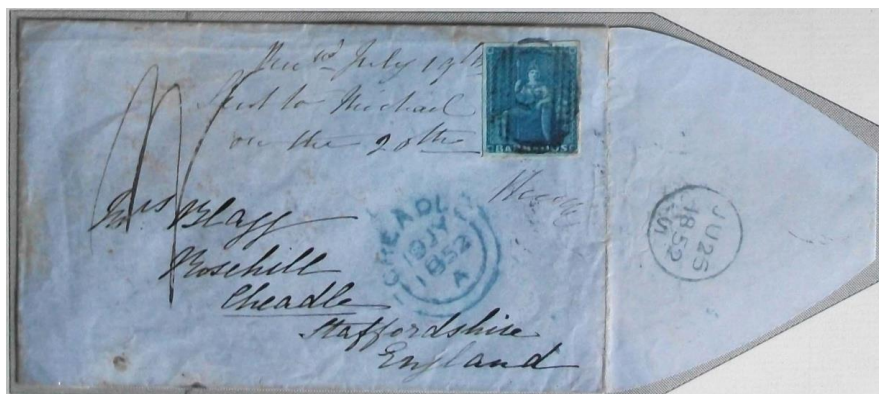 July 19th
Sent to Michael
on the 20th
BARBADOS
Mrs Blagg
Rosehill
Cheadle
Staffordshire
England
CHEADLE
19JY
1852
A
JU25
1852